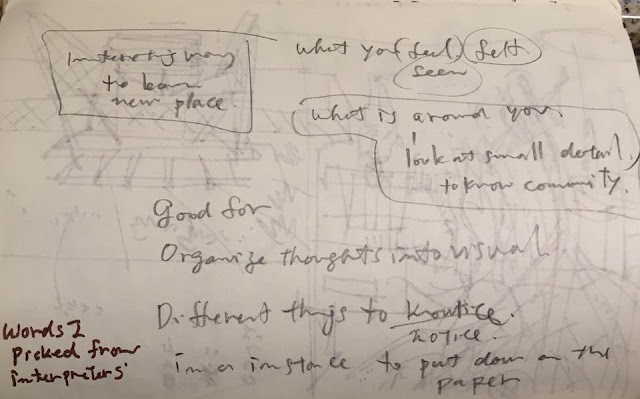 Interesting way
to learn
new place.
what you (feel) felt
seen
what is around you,
look at small detail,
to know comunity.
Good for
Organize thoughts into visual.
Different things to knowtice.
notice.
in a instance to put down on the
paper
Words I
picked from
interpreters'